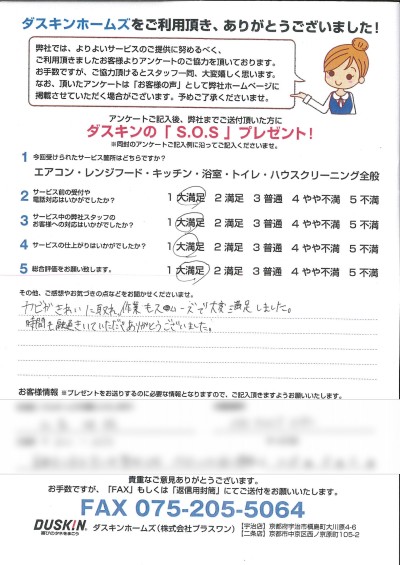 ダスキンホームズをご利用頂き、ありがとうございました！
弊社では、よりよいサービスのご提供に努めるべく、
ご利用頂きましたお客様よりアンケートのご協力を頂いております。
お手数ですが、ご協力頂けるとスタッフ一同、大変嬉しく思います。
なお、頂いたアンケートは「お客様の声」として弊社ホームページに
掲載させていただく場合がございます。予めご了承くださいませ。
アンケートご記入後、弊社までご送付頂いた方に
ダスキンの「S.O.S」プレゼント！
※同封のアンケートご記入例に沿ってご記入くださいませ。
1 今回受けられたサービス箇所はどちらですか？
エアコン・レンジフード・キッチン・浴室・トイレ・ハウスクリーニング全般
2 サービス前の受付や
電話対応はいかがでしたか？ 1 大満足 2 満足 3 普通 4 やや不満 5 不満
3 サービス中の弊社スタッフの
お客様への対応はいかがでしたか？ 1 大満足 2 満足 3 普通 4 やや不満 5 不満
4 サービスの仕上がりはいかがでしたか？ 1 大満足 2 満足 3 普通 4 やや不満 5 不満
5 総合評価をお願い致します。 1 大満足 2 満足 3 普通 4 やや不満 5 不満
その他、ご感想やお気づきの点などをお聞かせくださいませ。
カビがきれいに取れ、作業もスムーズで大変満足しました。
時間も融通きいていただきありがとうございました。
お客様情報 ※プレゼントをお送りするのに必要な情報となりますので、ご記入頂きますようお願いいたします。
貴重なご意見ありがとうございます。
お手数ですが、「FAX」もしくは「返信用封筒」にてご送付をお願いいたします。
FAX 075-205-5064
DUSKIN
喜びのタネをまこう
ダスキンホームズ（株式会社プラスワン）
【宇治店】京都府宇治市槇島町大川原4-6
【二条店】京都市中京区西ノ京原町105-2